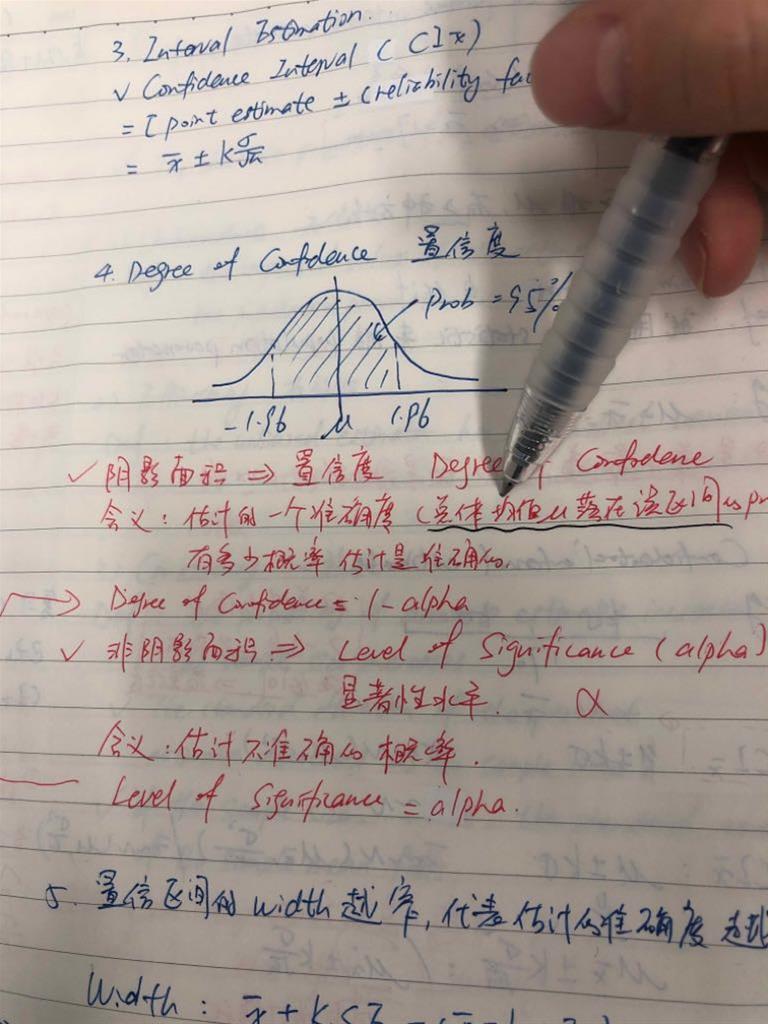 3. Interval Estimation.
√ Confidence Interval ( CI x )
= [ point estimate ± (reliability
= x̄ ± k σ/√n
4. Degree of Confidence 置信度
prob = 95%
-1.96 μ 1.96
✓ 阴影面积 ⇒ 置信度 Degree of Confidence
含义：估计的一个准确度 (总体均值μ落在该区间的pr
有多少概率估计是准确的.
Degree of Confidence = 1 - alpha
✓ 非阴影面积 ⇒ Level of Significance (alpha)
显著性水平. α
含义：估计不准确的概率.
Level of Significance = alpha.
5. 置信区间的 width 越窄, 代表估计的准确度越
Width : x̄ + k